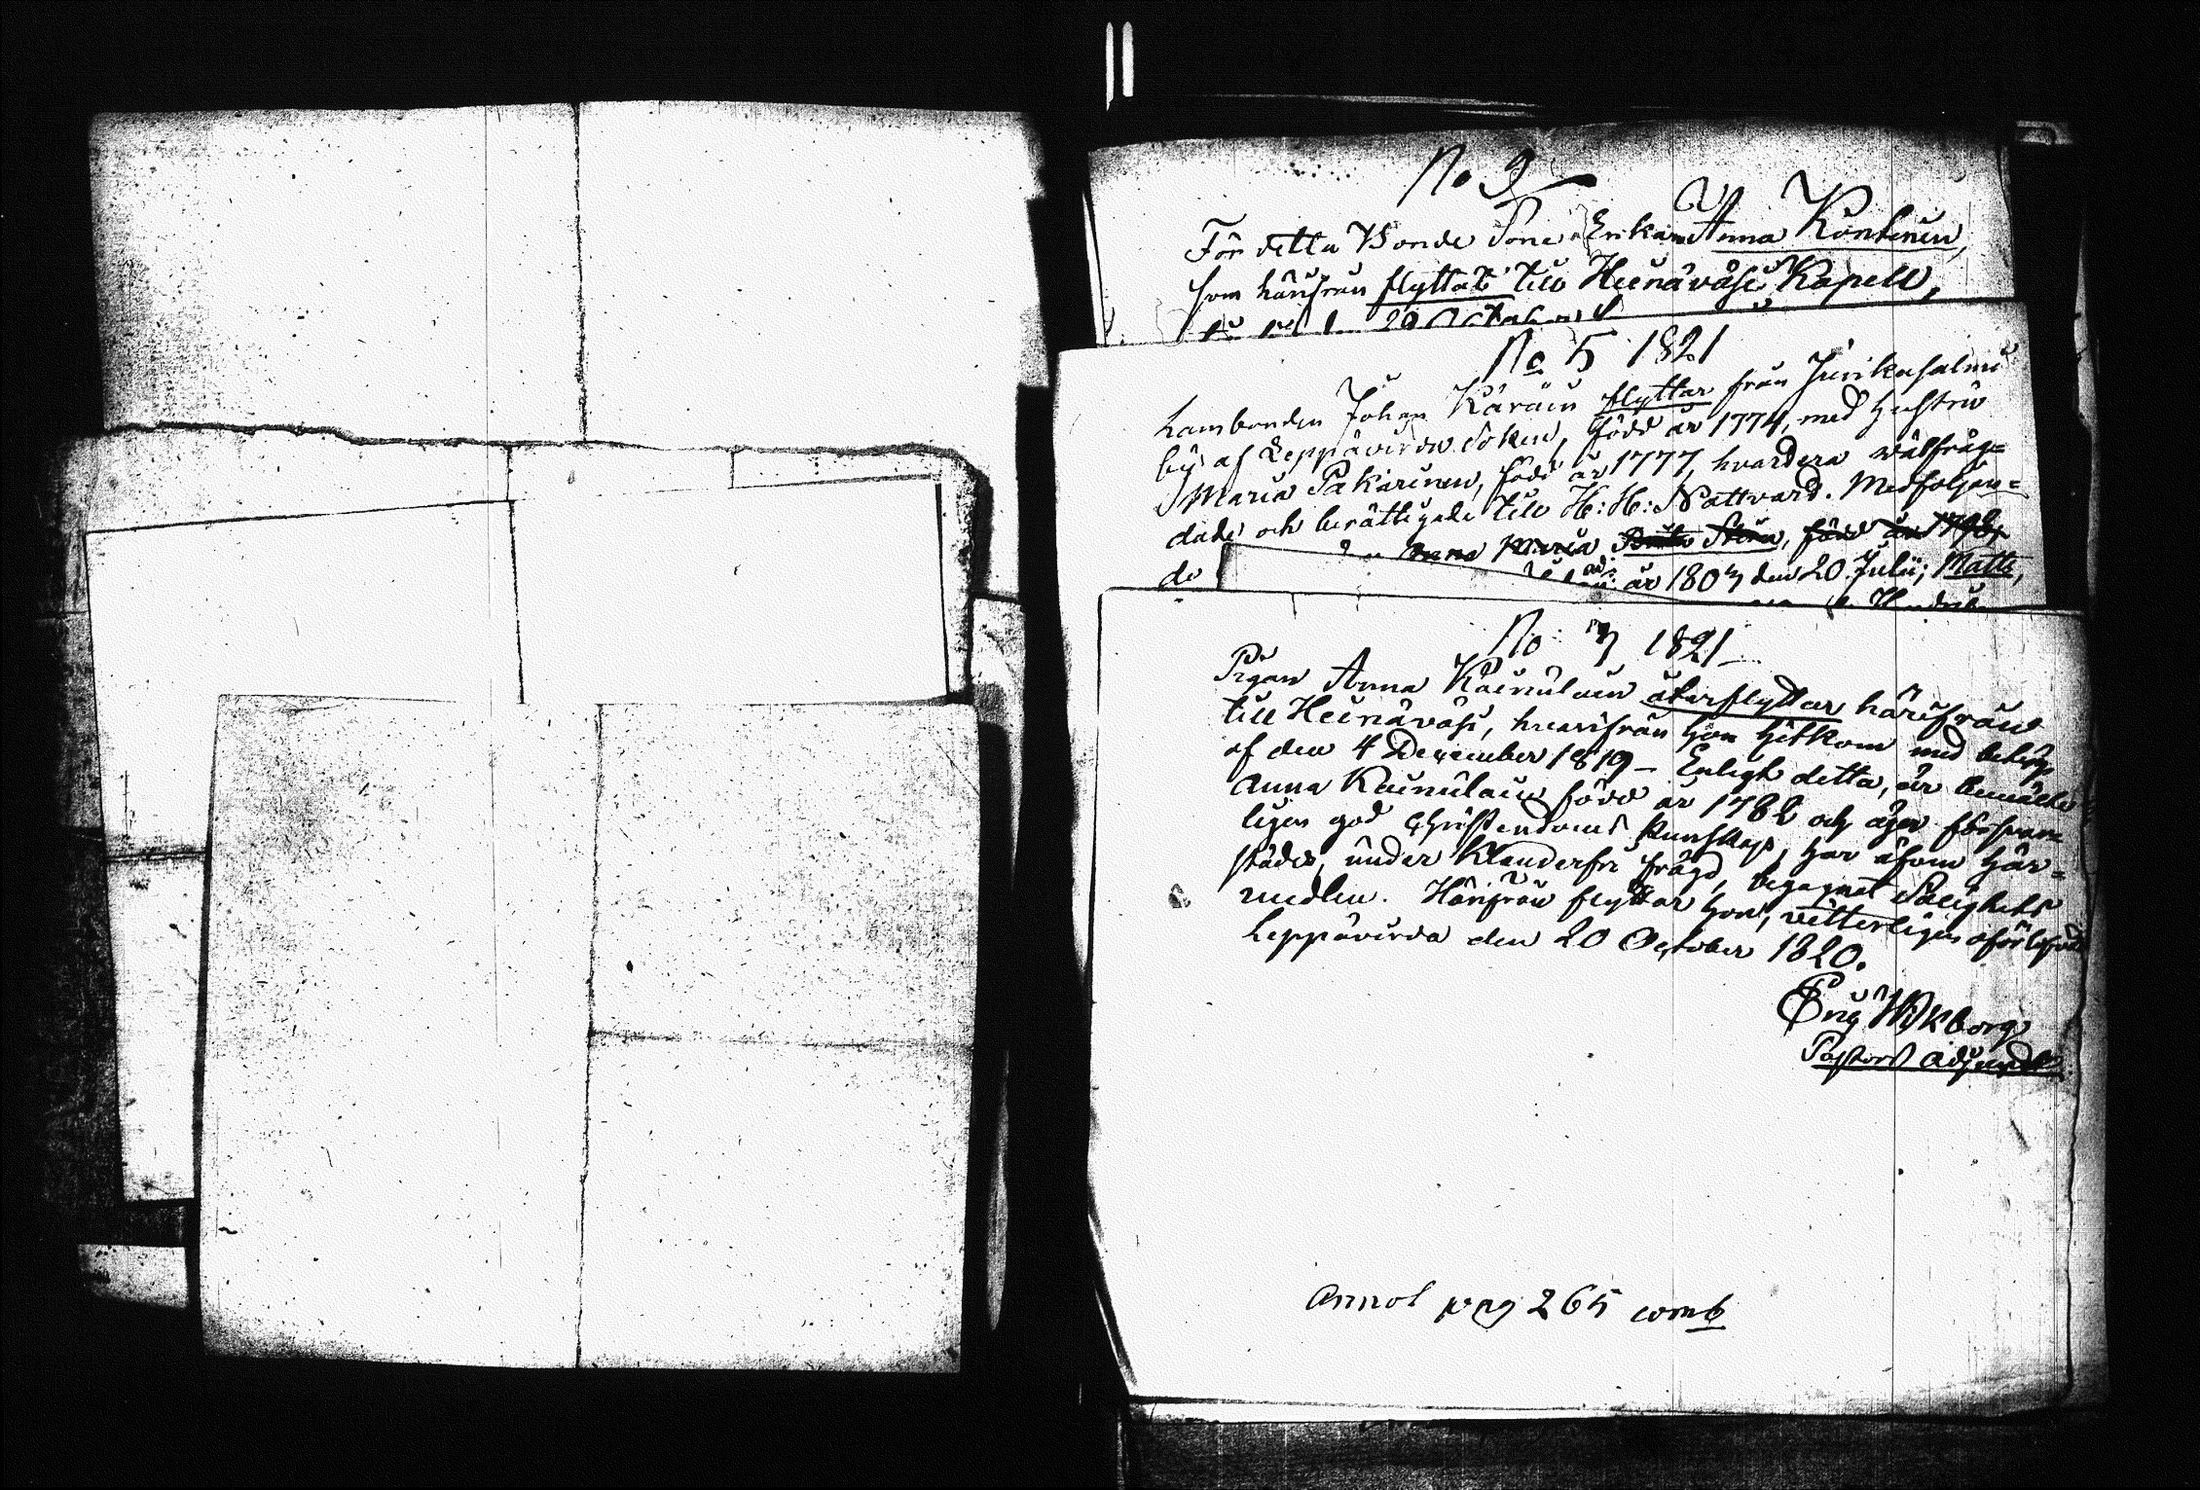 No 2
För detta Bonde Sone Enkan Anna Kontinen,
som härifrån flyttat till Heinävesi Kapell,
29 October
No 5 1821
Lambonden Johan Käräin flyttar från Juvikasalmi
by af Leppävirda Soken, född år 1774, med hustru
Maria Pakarinen, född år 1777, hvardera wälfräg=
dade och berättigade till H: H: Nattvard. Medföljan=
de Anna Maria Stina, född år
år 1807 den 20 Julii; Matts,
No 7 1821
Pigan Anna Kainulain återflyttar härifrån
till Heinäväsi, hvarifrån hon hitkom med betyg
af den 4 December 1819 – Enligt detta, är bemälte
Anna Kainulain född år 1782 och äger försvar=
ligen god Christendoms kunskap, har äfven här=
städes, under klanderfri frägd, begagnat Salighets
medlen. Härifrån flyttar hon, vitterligen oförlofvad
Leppävirda den 20 October 1820.
Eric Wikborg
Pastors Adjunct
Annot pag 265 comb